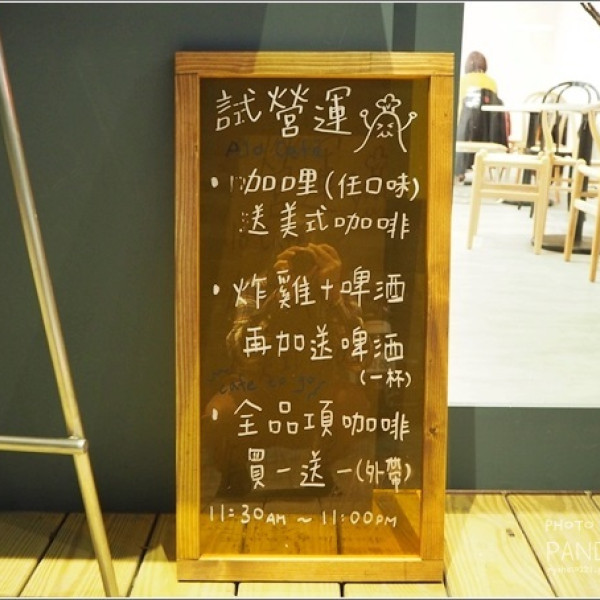 試營運
・咖哩(任口味)
送美式咖啡
・炸雞+啤酒
再加送啤酒
(一杯)
・全品項咖啡
買一送一(外帶)
11:30AM ~ 11:00PM
PHOTO
PAND